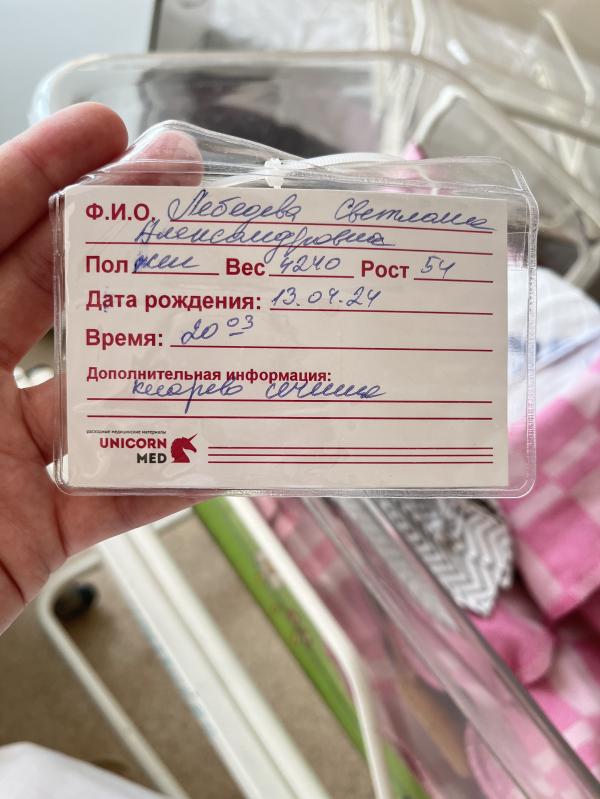 Ф.И.О. Лебедева Светлана
Александровна
Пол жен Вес 4240 Рост 54
Дата рождения: 13.04.24
Время: 20 03
Дополнительная информация:
кесарево сечение
расходные медицинские материалы
UNICORN
MED